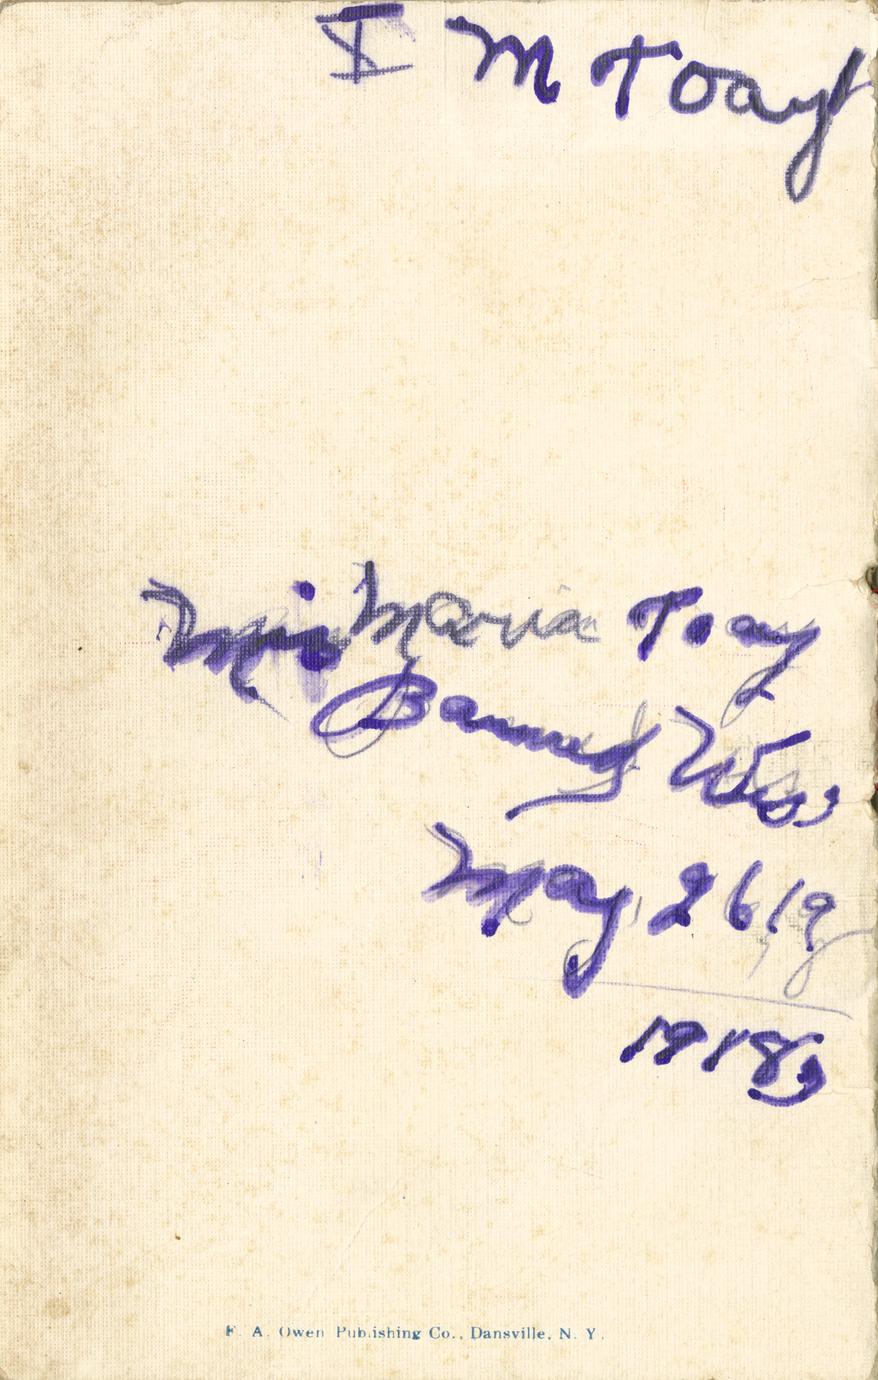 I M Toay
Mis Maria Toay
Wis
May 26 19
1918,
F. A. Owen Publishing Co., Dansville, N. Y.